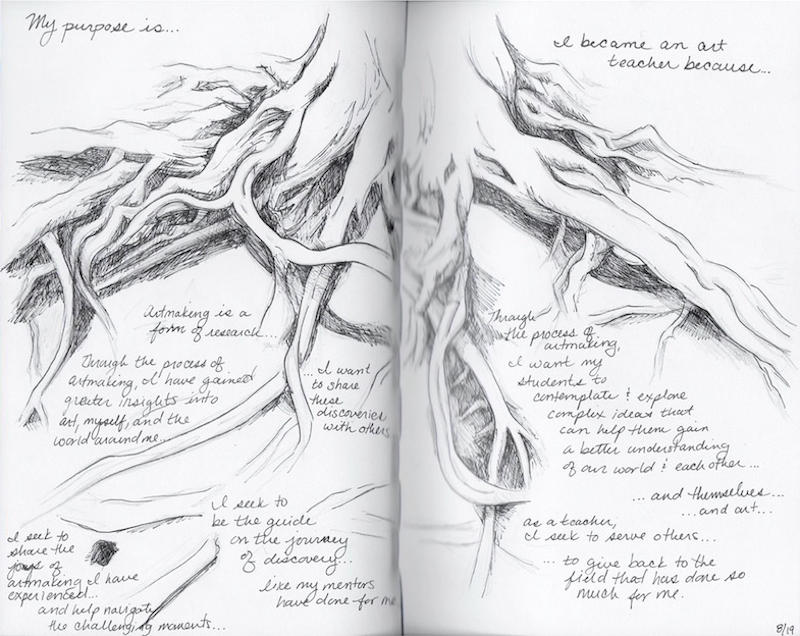 My purpose is...
Artmaking is a
form of research...
Through the process of
artmaking, I have gained
greater insights into
art, myself, and the
world around me...
...I want
to share
these
discoveries
with others
I seek to
be the guide
on the journey
of discovery...
like my mentors
have done for me
I seek to
share the
joys of
artmaking I have
experienced...
and help navigate
the challenging moments...
I became an art
teacher because...
Through
the process of
artmaking,
I want my
students to
contemplate & explore
complex ideas that
can help them gain
a better understanding
of our world & each other...
...and themselves...
...and art...
as a teacher,
I seek to serve others...
...to give back to the
field that has done so
much for me.
8/19